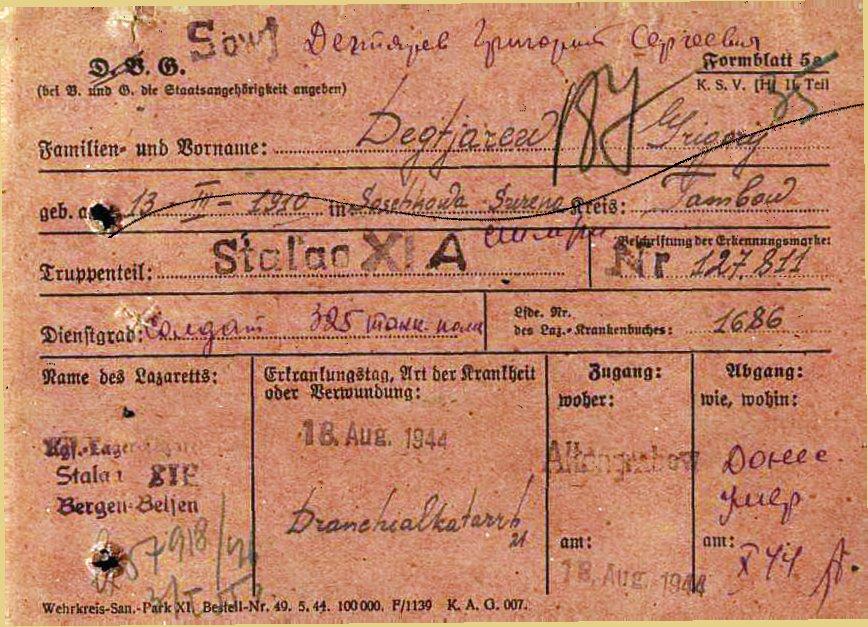 Sowj Дегтярев Григорий Сергеевич
D. B. G.
Formblatt 5a
(bei B. und G. die Staatsangehörigkeit angeben)
K. S. V. [H] II. Teil
Familien- und Vorname: Degtjarew Grigorij
geb. a 13 - III - 1910 in Kreis: Tambow
Beschriftung der Erkennungsmarke:
Truppenteil: Stalag XI A Nr 127.811
Dienstgrad: Солдат 325 танк. полк
Lfde. Nr.
des Laz.-Krankenbuches: 1686
Name des Lazaretts:
Erkrankungstag, Art der Krankheit
oder Verwundung:
Zugang:
woher:
Abgang:
wie, wohin:
18. Aug. 1944
Altengrabow
Kgf.-Laza
Stala XIE
Bergen-Belsen
Донес.
умер
Bronchialkatarrh
21
am:
18. Aug. 1944
am:
X 44
Wehrkreis-San.-Park XI. Bestell-Nr. 49. 5. 44. 100000. F/1139 K. A. G. 007.